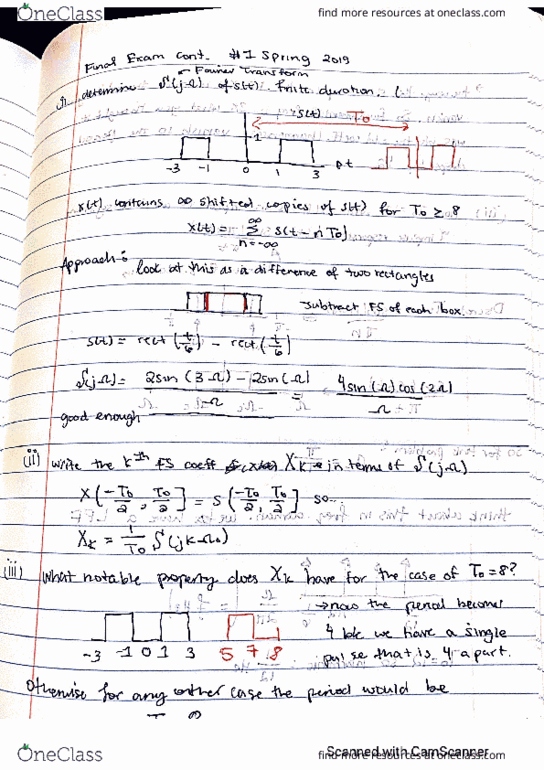 OneClass
find more resources at oneclass.com
Final Exam cont. #1 Spring 2019
← Fourier Transform
i) determine S(jΩ) of s(t) finite duration
s(t) T₀
1
-3 -1 0 1 3 t
x(t) contains ∞ shifted copies of s(t) for T₀ ≥ 8
x(t) = ∞ Σ n=-∞ s(t - nT₀)
Approach:
look at this as a difference of two rectangles
subtract FS of each box
s(t) = rect(t/6) - rect(t/6)
S(jΩ) = 2sin(3Ω) - 2sin(Ω) / Ω = 4sin(Ω)cos(2Ω) / Ω
good enough
(ii) write the kth FS coeff Xk in terms of S(jΩ)
X(-T₀/2, T₀/2] = S(-T₀/2, T₀/2] so...
Xk = 1/T₀ S(jkΩ₀)
(iii) What notable property does Xk have for the case of T₀=8?
→now the period becomes
4 b/c we have a single
pulse that is 4 apart.
-3 -1 0 1 3 5 7 8
Otherwise for any other case the period would be
OneClass
Scanned with CamScanner
find more resources at oneclass.com